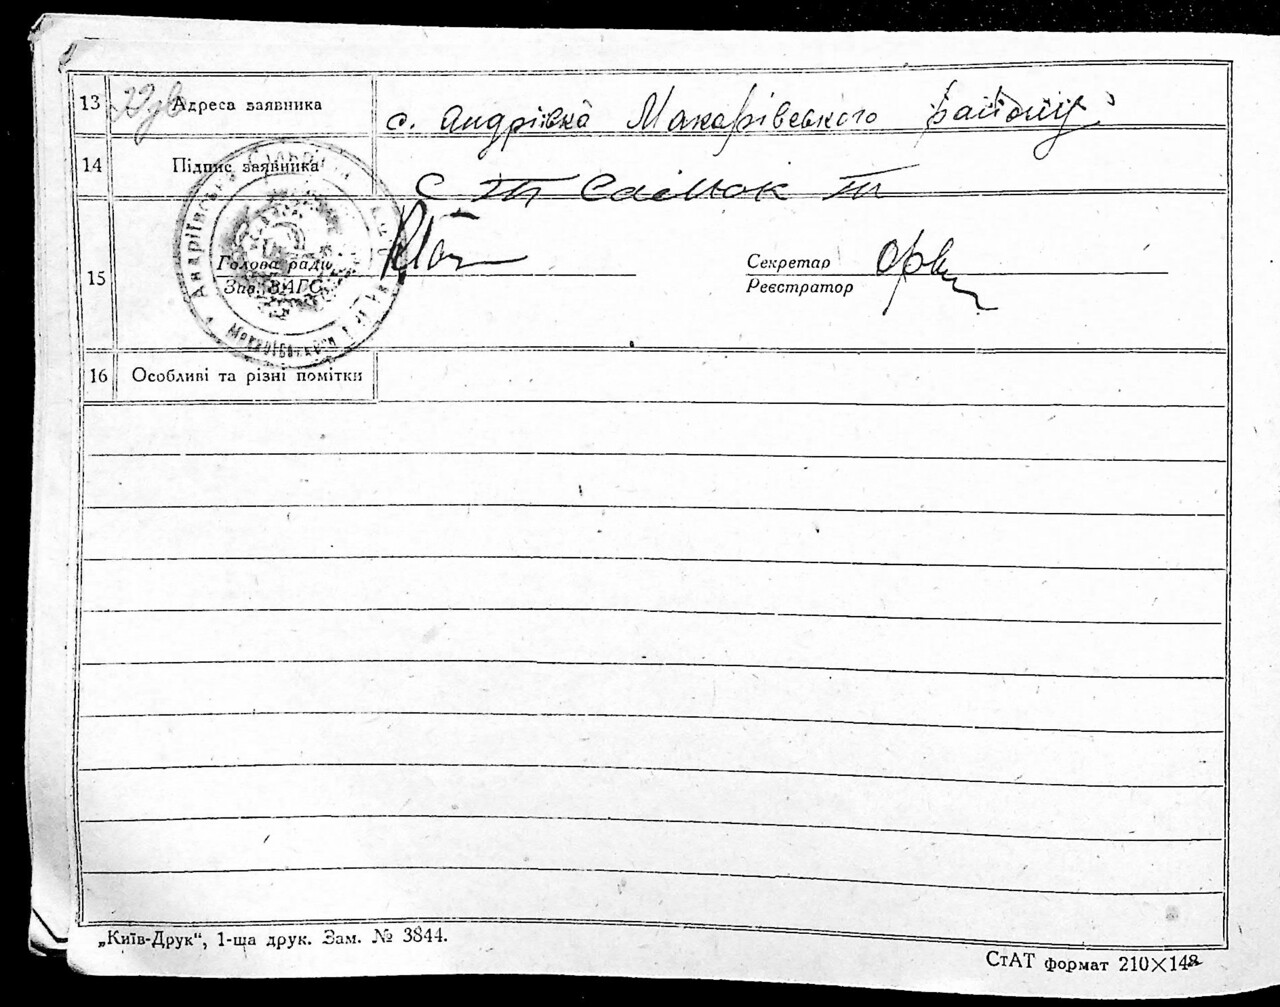 13 Адреса заявника с. Андріївка Макарівського району
14 Підпис заявника
15 Голова ради Секретар
Зав. ЗАГС Реєстратор
16 Особливі та різні помітки
„Київ-Друк“, 1-ша друк. Зам. № 3844.
СтАТ формат 210×148